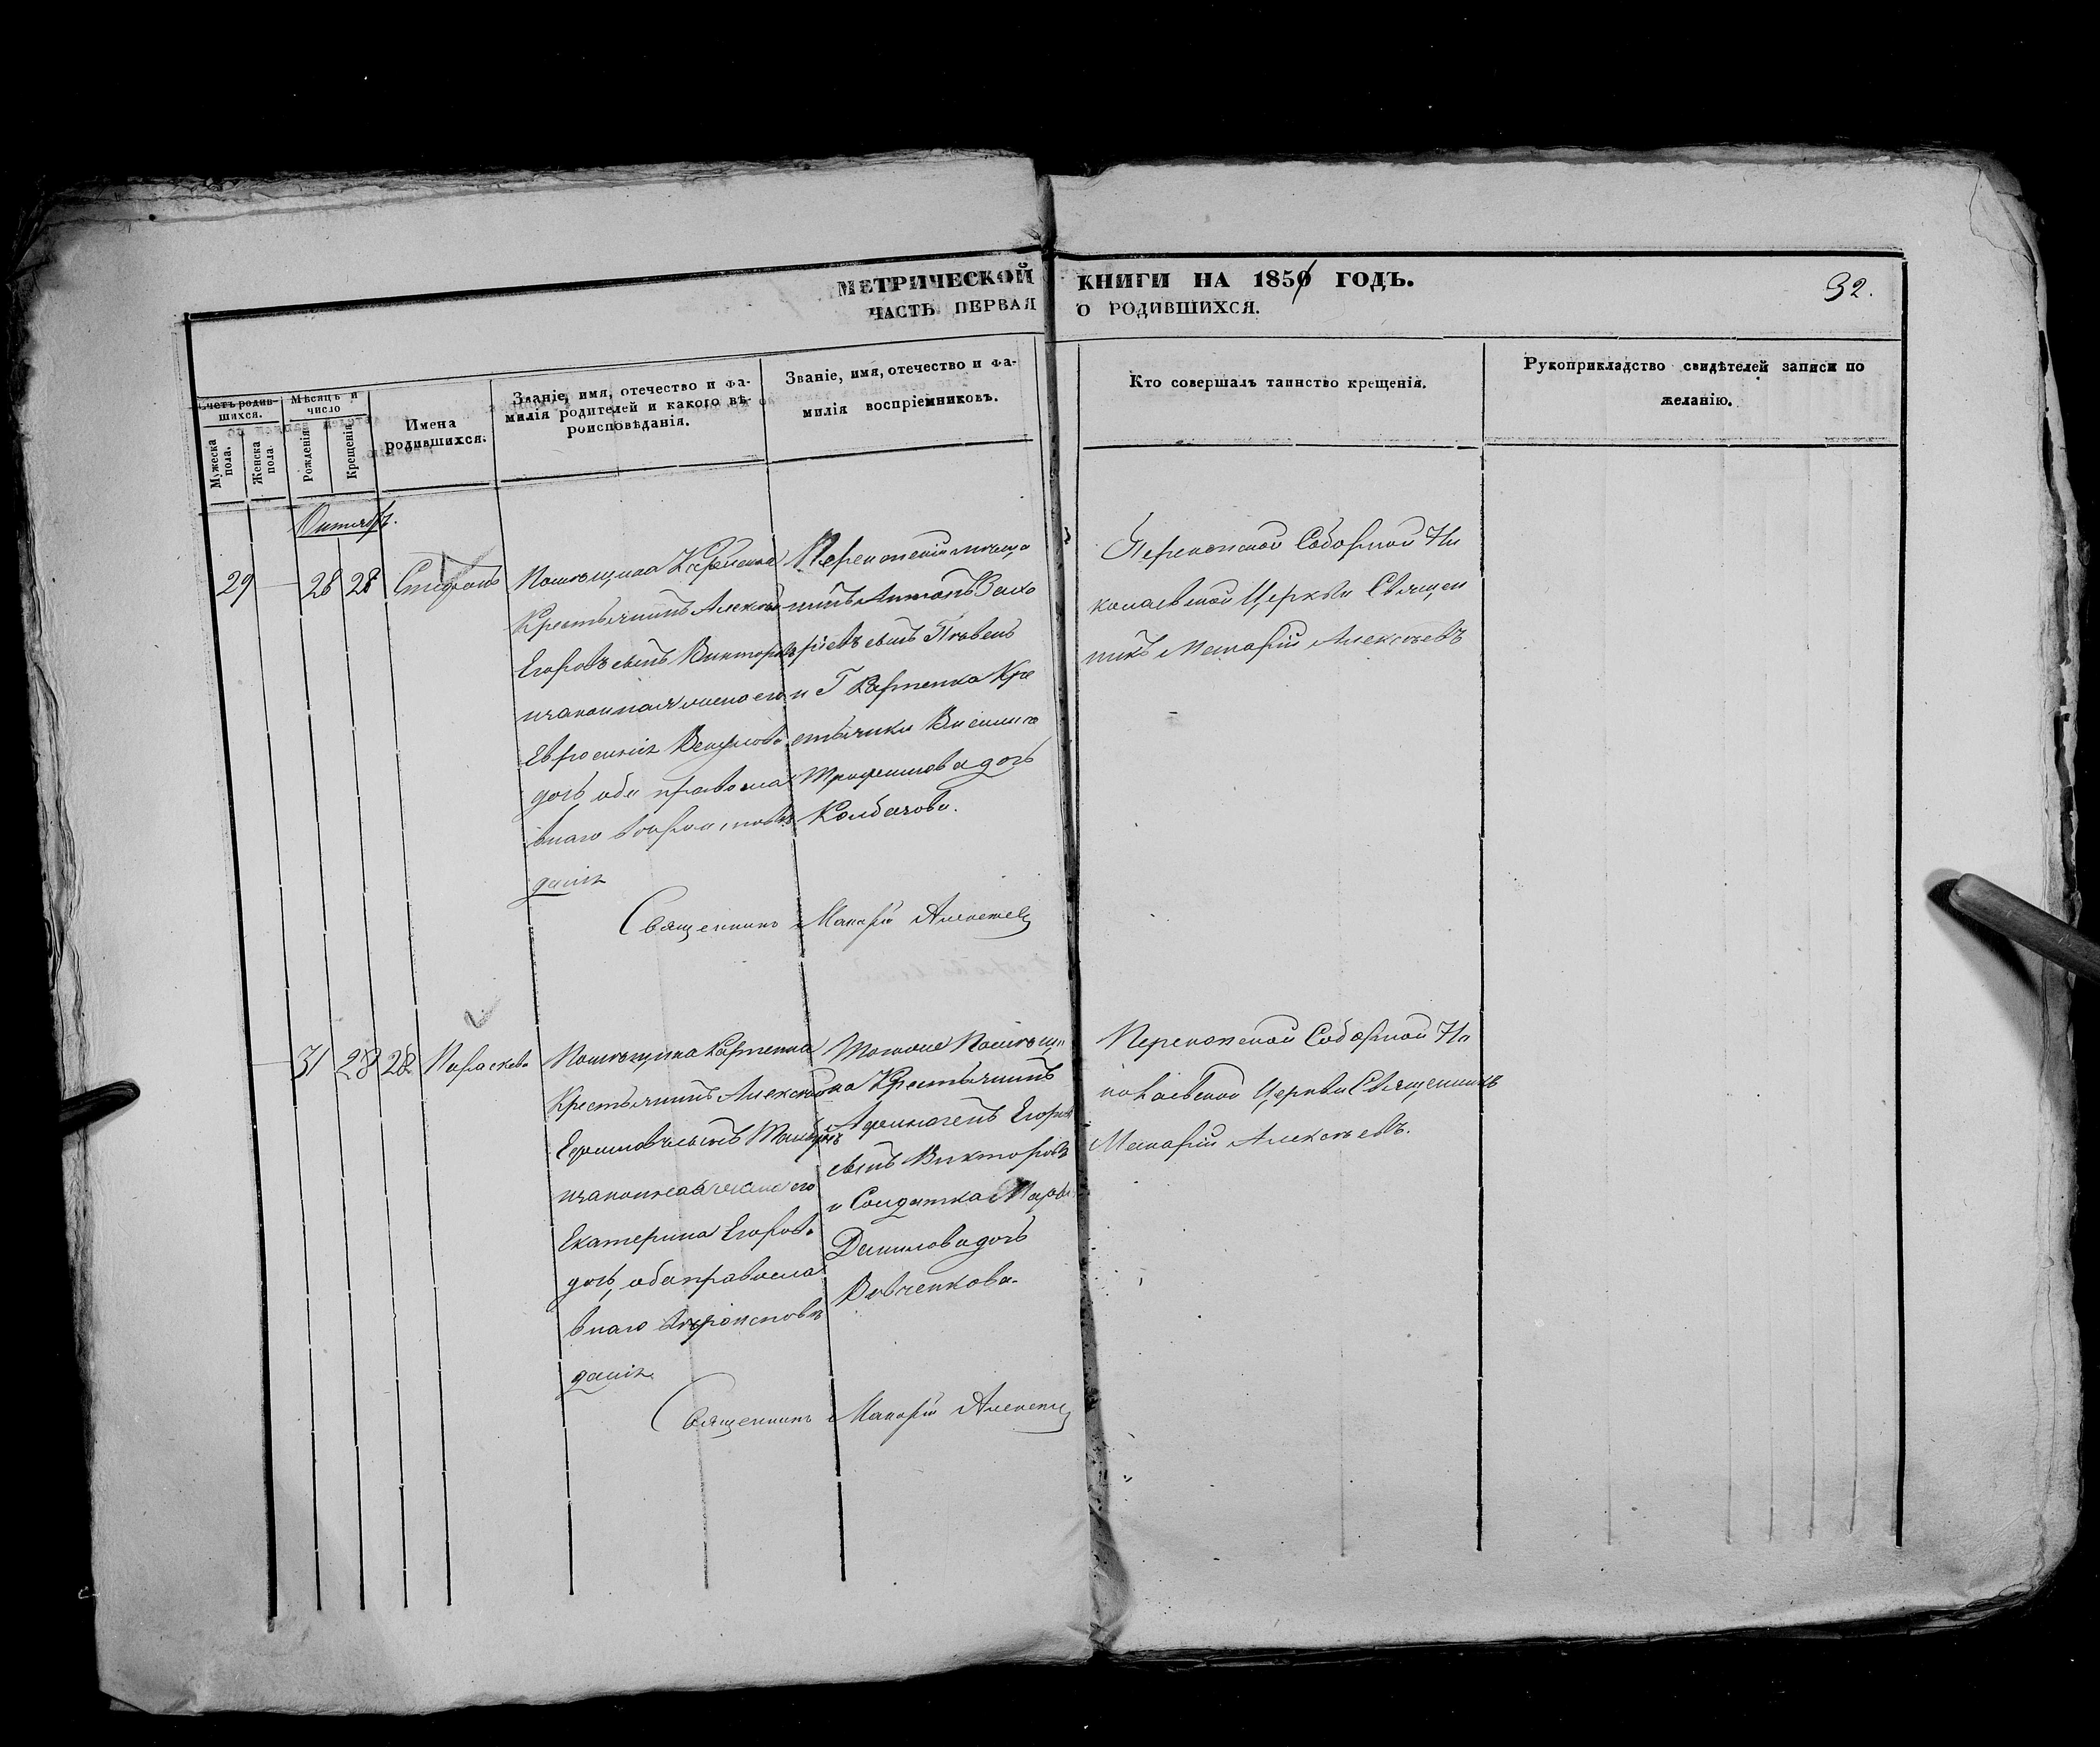 МЕТРИЧЕСКОЙ КНИГИ НА 1850 ГОДЪ.
32.
ЧАСТЬ ПЕРВАЯ О РОДИВШИХСЯ.
Счетъ родив-
шихся.
Мужеска
пола.
Женска
пола.
Мѣсяцъ и
число
Рожденія
Крещенія
Имена
родившихся.
Званіе, имя, отечество и фа-
милія родителей и какого вѣ-
роисповѣданія.
Званіе, имя, отечество и фа-
милія воспріемниковъ.
Кто совершалъ таинство крещенія.
Рукоприкладство свидѣтелей записи по
желанію.
Октябрь.
29
28
28
Стефанъ
Помѣщика
Крестьянинъ Алексѣй
Егоровъ сынъ Викторовъ
и законная жена его
Евросинія
дочь оба правосла
внаго вѣроисповѣ
данія
мѣща
нинъ Антонъ Заха
рієвъ сынъ
и Г. Карпенка Кре
стьянки
Трофимова дочь
Перекопской Соборной Ни
колаевской Церкви Священ
никъ Макарій Алексѣевъ
Священникъ Макарій Алексѣевъ
31
28
28
Параскева
Помѣщика Карпенка
Крестьянинъ Алексѣй
сынъ
и законная жена его
Екатерина Егорова
дочь, оба правосла
внаго вѣроисповѣ
данія.
Тогоже Помѣщи
ка Крестьянинъ
Афиногенъ Егоровъ
сынъ Викторовъ
и Солдатка Марфа
Данилова дочь
Вовченкова.
Перекопской Соборной Ни
колаевской Церкви Священникъ
Макарій Алексѣевъ.
Священникъ Макарій Алексѣевъ